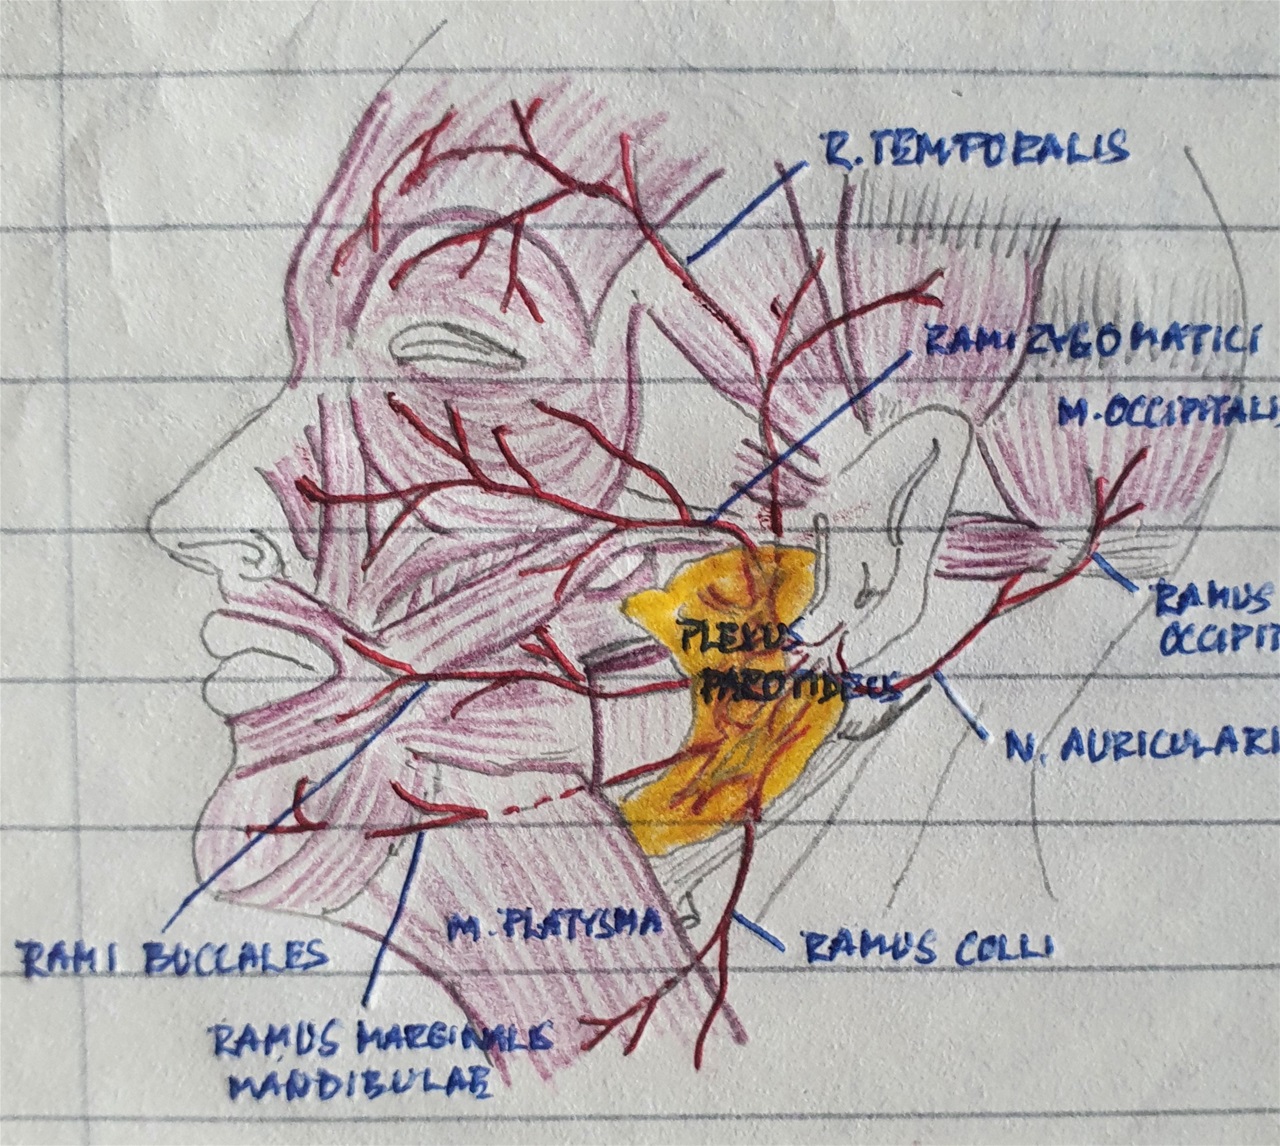 R. TEMPORALIS
RAMI ZYGOMATICI
M. OCCIPITALI
RAMUS
OCCIPIT
PLEXUS
PAROTIDEUS
N. AURICULARI
M. PLATYSMA
RAMUS COLLI
RAMI BUCCALES
RAMUS MARGINALIS
MANDIBULAE